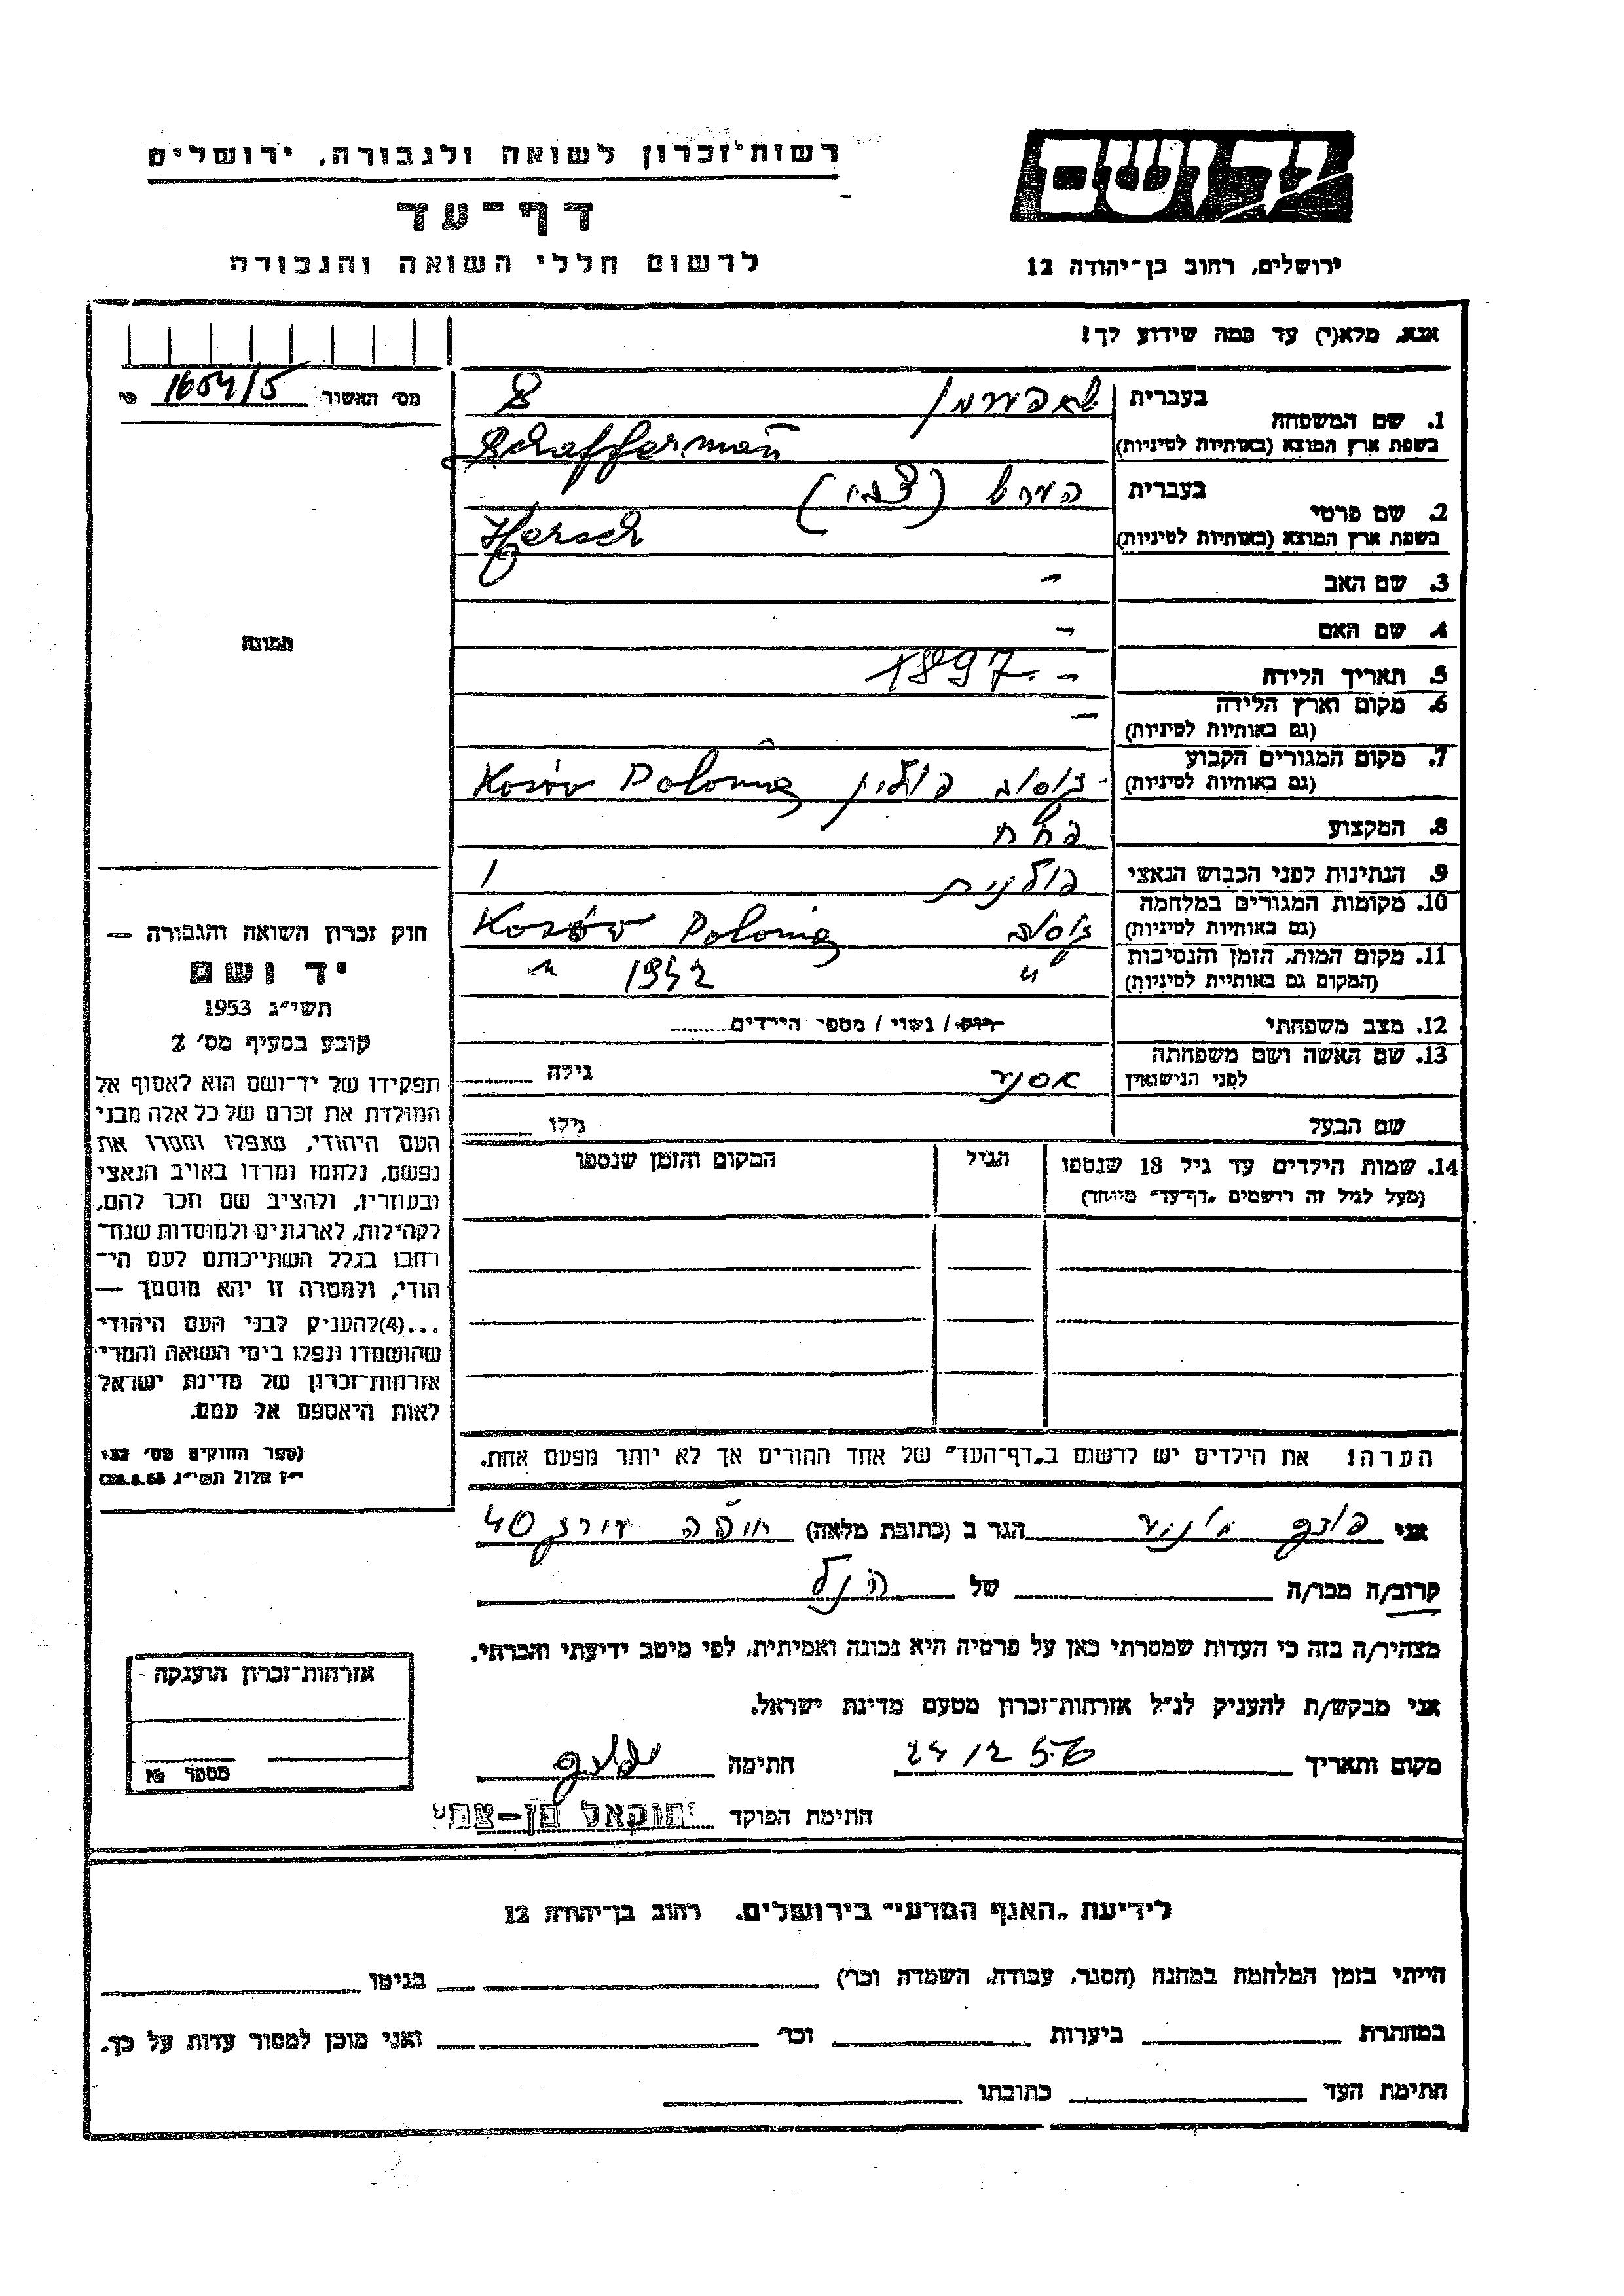 רשות־זכרון לשואה ולגבורה, ירושלים
יד ושם
דף־עד
לרשום חללי השואה והגבורה
ירושלים, רחוב בן־יהודה 12
אנא, מלא(י) עד כמה שידוע לך!
מס׳ האשור 1654/5 №
1. שם המשפחה
בעברית שאפערמן 8
בשפת ארץ המוצא (באותיות לטיניות) Schafferman
2. שם פרטי
בעברית הערש (צבי)
בשפת ארץ המוצא (באותיות לטיניות) Hersch
3. שם האב -
4. שם האם -
5. תאריך הלידה 1897. -
6. מקום וארץ הלידה -
(גם באותיות לטיניות)
7. מקום המגורים הקבוע קוסוב פולין Kosów Polonia
(גם באותיות לטיניות)
8. המקצוע פחח
9. הנתינות לפני הכבוש הנאצי פולנית
10. מקומות המגורים במלחמה קוסוב Kosów Polonia
(גם באותיות לטיניות)
11. מקום המות, הזמן והנסיבות " 1942 "
(המקום גם באותיות לטיניות)
12. מצב משפחתי רווק / נשוי / מספר הילדים
13. שם האשה ושם משפחתה אסתר גילה
לפני הנישואין
שם הבעל גילו
14. שמות הילדים עד גיל 18 שנספו הגיל המקום והזמן שנספו
(מעל לגיל זה רושמים „דף־עד״ מיוחד)
הערה! את הילדים יש לרשום ב„דף־העד״ של אחד ההורים אך לא יותר מפעם אחת.
תמונה
חוק זכרון השואה והגבורה —
יד ושם
תשי״ג 1953
קובע בסעיף מס׳ 2
תפקידו של יד־ושם הוא לאסוף אל
המולדת את זכרם של כל אלה מבני
העם היהודי, שנפלו ומסרו את
נפשם, נלחמו ומרדו באויב הנאצי
ובעוזריו, ולהציב שם וזכר להם,
לקהילות, לארגונים ולמוסדות שנח־
רבו בגלל השתייכותם לעם הי־
הודי, ולמטרה זו יהא מוסמך —
...(4) להעניק לבני העם היהודי
שהושמדו ונפלו בימי השואה והמרי
אזרחות־זכרון של מדינת ישראל
לאות היאספם אל עמם.
(ספר החוקים מס׳ 132
י״ז אלול תשי״ג 28.8.53)
אני הגר ב (כתובת מלאה) חיפה 40
קרוב/ה מכר/ה של הנ״ל
מצהיר/ה בזה כי העדות שמסרתי כאן על פרטיה היא נכונה ואמיתית, לפי מיטב ידיעתי והכרתי.
אני מבקש/ת להעניק לנ״ל אזרחות־זכרון מטעם מדינת ישראל.
מקום ותאריך 24 12 56 חתימה
חתימת הפוקד יחזקאל בן-צמי
אזרחות־זכרון הוענקה
מספר №
לידיעת „האגף המדעי״ בירושלים, רחוב בן־יהודה 12
הייתי בזמן המלחמה במחנה (הסגר, עבודה, השמדה וכו׳) בגיטו
במחתרת ביערות וכו׳ ואני מוכן למסור עדות על כך.
חתימת העד כתובתו